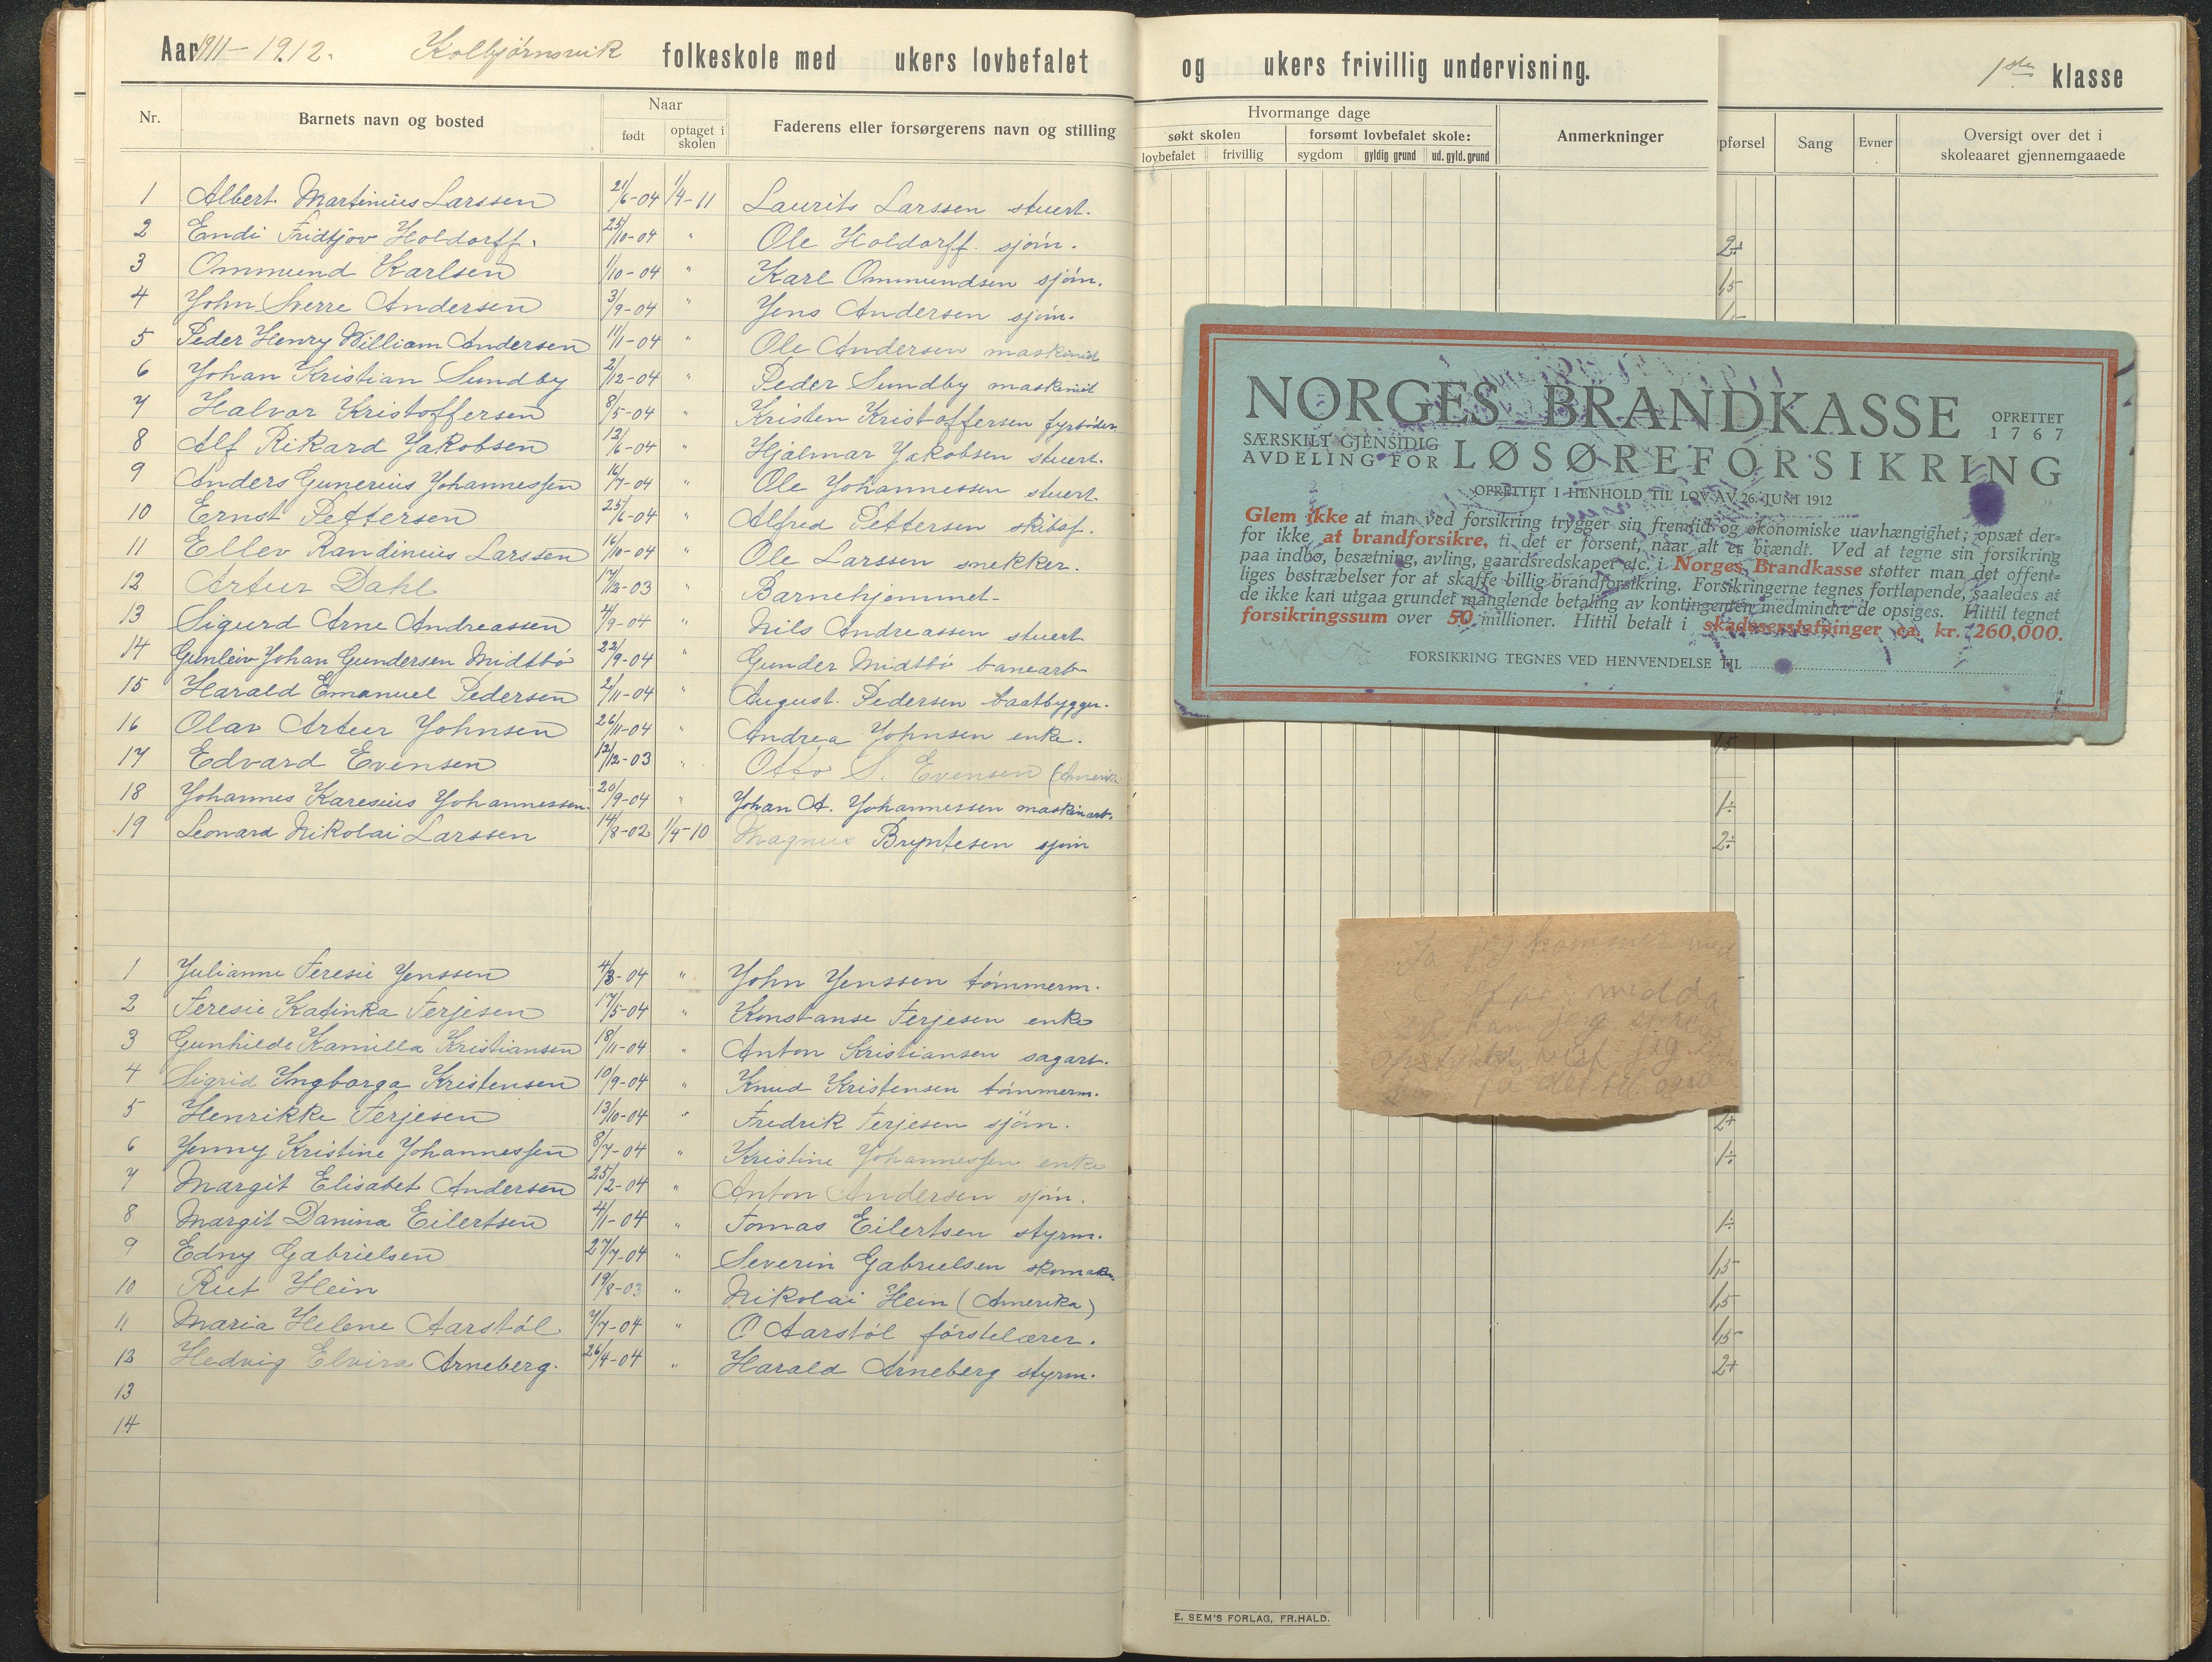 Aar 1911-1912. Kolbjørnsvik folkeskole med ukers lovbefalet og ukers frivillig undervisning. 1ste klasse
Nr. Barnets navn og bosted Naar født optaget i skolen Faderens eller forsørgerens navn og stilling
Hvormange dage
søkt skolen forsømt lovbefalet skole: Anmerkninger
lovbefalet frivillig sygdom gyldig grund ud. gyld. grund
pførsel Sang Evner Oversigt over det i skoleaaret gjennemgaaede
1 Albert Martinius Larssen 21/6-04 1/4-11 Laurits Larssen stuert.
2 Endi Fridtjov Holdorff. 25/10-04 " Ole Holdorff. sjøm. 2+
3 Ommund Karlsen 1/10-04 " Karl Ommundsen sjøm. 1,5
4 John Sverre Andersen 3/9-04 " Jens Andersen sjøm.
5 Peder Henry William Andersen 11/1-04 " Ole Andersen maskinist
6 Johan Kristian Sundby 2/12-04 " Peder Sundby maskinist
7 Halvor Kristoffersen 8/5-04 " Kristen Kristoffersen fyrbøder
8 Alf Rikard Jakobsen 12/6-04 " Hjalmar Jakobsen stuert.
9 Anders Gunerius Johannessen 16/7-04 " Ole Johannessen stuert.
10 Ernst Pettersen 25/6-04 " Alfred Pettersen skibsf.
11 Ellev Randinius Larssen 16/10-04 " Ole Larssen snekker.
12 Artur Dahl " Barnehjemmet
13 Sigurd Arne Andreassen 4/9-04 " Nils Andreassen stuert
14 Gunleiv Johan Gundersen Midtbø 22/9-04 " Gunder Midtbø banearb
15 Harald Emanuel Pedersen 2/11-04 " August. Pedersen baatbygger.
16 Olav Artur Johnsen 26/11-04 " Andrea Johnsen enke.
17 Edvard Evensen 12/12-03 " Otto S. Evensen (Amerika 1,5
18 Johannes Karesius Johannessen. 20/9-04 " Johan A. Johannessen maskinarb. 1÷
19 Leonard Nikolai Larssen 14/8-02 1/4-10 Magnus Bryntesen sjøm 2÷
1 Julianne Teresie Jenssen 4/3-04 " John Jenssen tømmerm.
2 Teresie Katinka Terjesen 17/5-04 " Konstanse Terjesen enke
3 Gunhilde Kamilla Kristiansen 18/11-04 " Anton Kristiansen sagarb.
4 Sigrid Ingborga Kristensen 10/9-04 " Knud Kristensen tømmerm.
5 Henrikke Terjesen 13/10-04 " Fredrik Terjesen sjøm. 2+
6 Jenny Kristine Johannessen 8/7-04 " Kristine Johannessen enke 1÷
7 Margit Elisabet Andersen 25/2-04 " Anton Andersen sjøm.
8 Margit Danina Eilertsen 4/1-04 " Tomas Eilertsen styrm. 1÷
9 Edny Gabrielsen 27/7-04 " Severin Gabrielsen skomaker. 1,5
10 Rut Hein 19/8-03 " Nikolai Hein (Amerika) 1,5
11 Maria Helene Aarstøl 7/7-04 " O Aarstøl førstelærer. 1,5
12 Hedvig Elvira Arneberg. 26/4-04 " Harald Arneberg styrm. 2+
13
14
NORGES BRANDKASSE OPRETTET 1767
SÆRSKILT GJENSIDIG AVDELING FOR LØSØREFORSIKRING
OPRETTET I HENHOLD TIL LOV AV 26. JUNI 1912
Glem ikke at man ved forsikring trygger sin fremtid og økonomiske uavhængighet; opsæt der=
for ikke at brandforsikre, ti det er forsent, naar alt er brændt. Ved at tegne sin forsikring
paa indbo, besætning, avling, gaardsredskaper etc. i Norges Brandkasse støtter man det offent=
liges bestræbelser for at skaffe billig brandforsikring. Forsikringerne tegnes fortløpende, saaledes at
de ikke kan utgaa grundet manglende betaling av kontingenten medmindre de opsiges. Hittil tegnet
forsikringssum over 50 millioner. Hittil betalt i skadeserstatninger ca. kr. 260,000.
FORSIKRING TEGNES VED HENVENDELSE TIL
Ja jeg kommer med
for midda
så kan jeg
jeg
E. SEM'S FORLAG, FR.HALD.